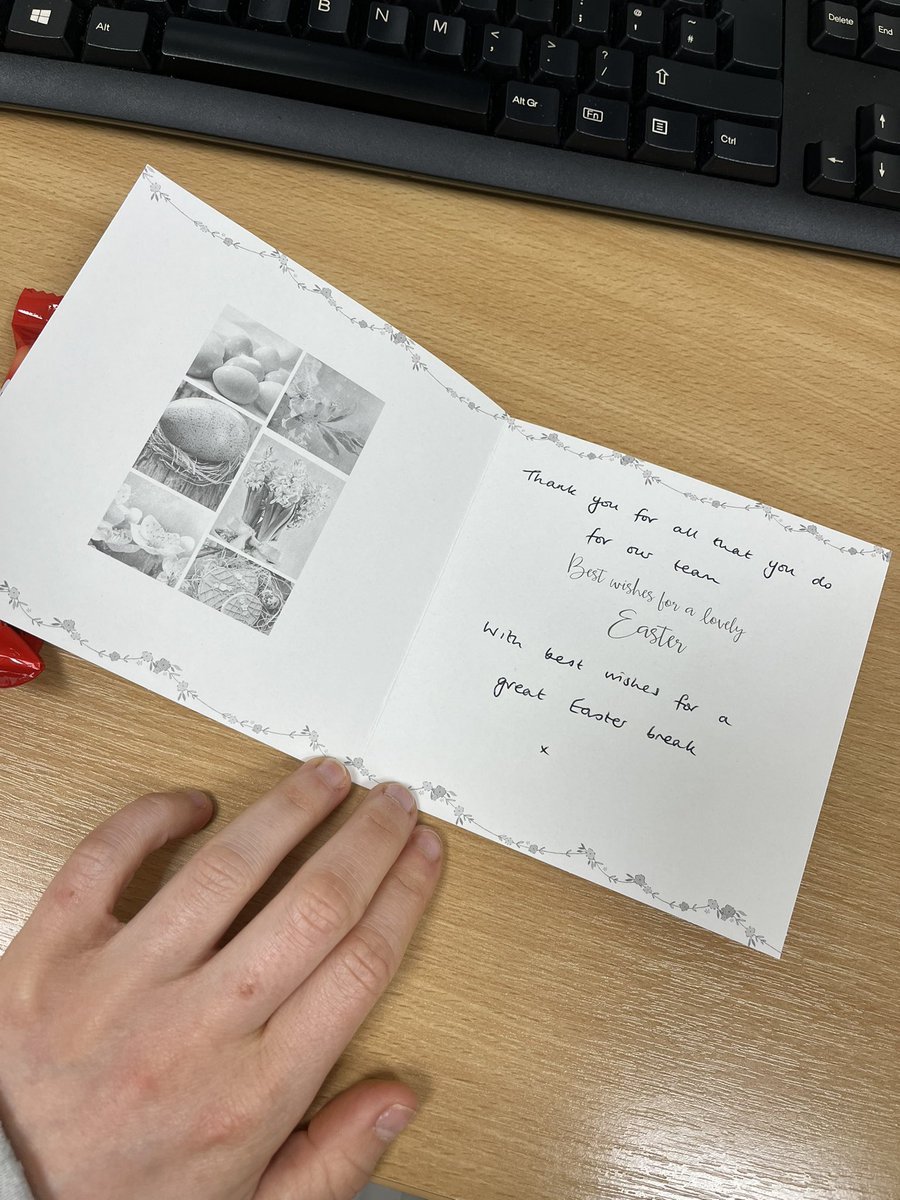 Alt
B
N
M
<
,
>
.
?
/
:
;
@
'
~
#
Delete
End
Alt Gr
Fn
Ctrl
Thank you for all that you do
for our team
Best wishes for a lovely
Easter
With best wishes for a
great Easter break
x